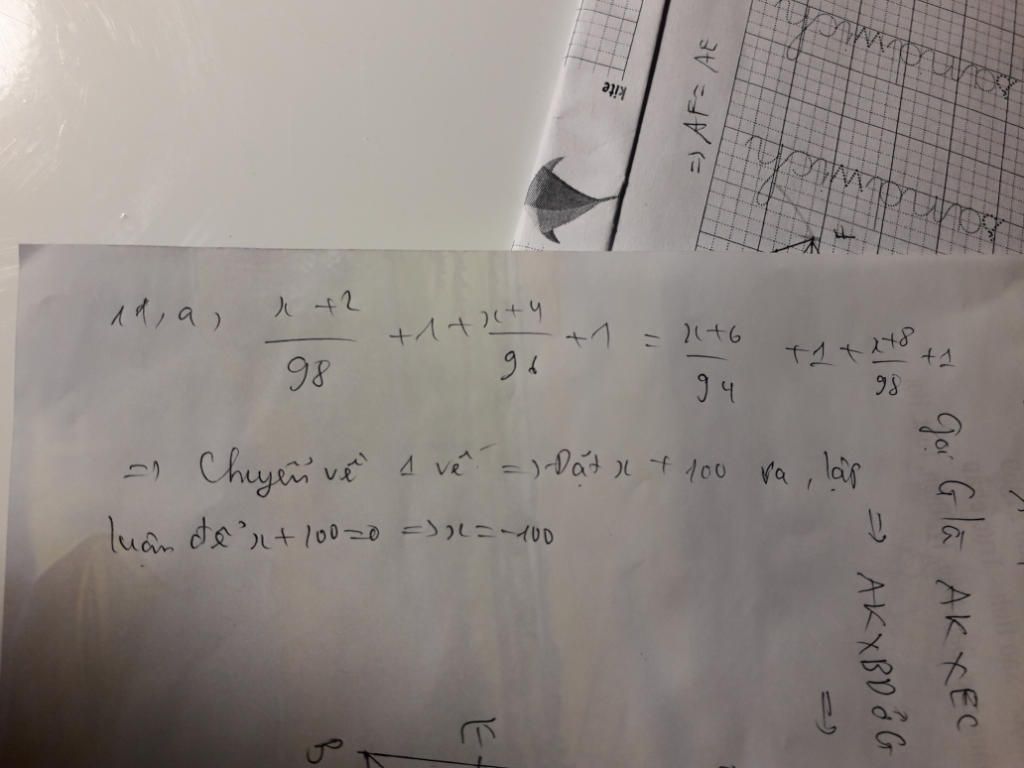 1d, a, x+2/98 + 1 + x+4/96 + 1 = x+6/94 + 1 + x+8/98 + 1
=> Chuyển vế 1 vế => Đặt x + 100 ra, lập
luận để x + 100 = 0 => x = -100
Gọi G là AK x EC
=> AK x BD ở G
=>
=> AF = AE
kite
F
B
E